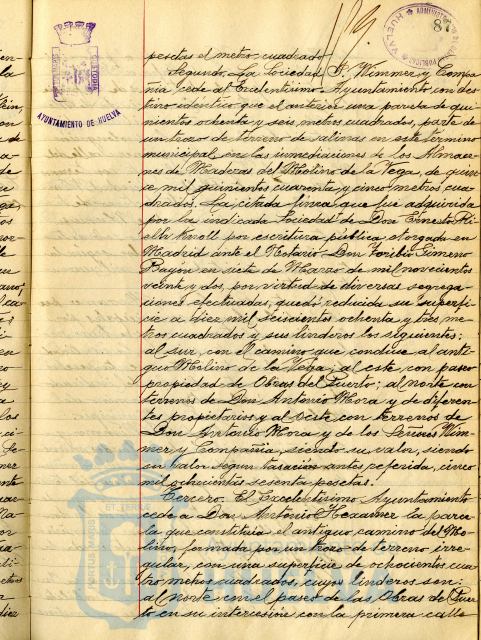 87
AYUNTAMIENTO DE HUELVA
pesetas el metro cuadrado
Segundo. La Sociedad J. Wimmer y Compa
ñía cede al Excelentísimo Ayuntamiento con des
tino idéntico que el anterior una parcela de qui
nientos ochenta y seis metros cuadrados, parte de
un trozo de terreno de salinas en este término
municipal en las inmediaciones de los Almace
nes de Maderas del Molino de la Vega, de quin
ce mil quinientos cuarenta y cinco metros cua
drados. La citada finca que fue adquirida
por la indicada Sociedad de Don Ernesto
Knoll por escritura pública otorgada en
Madrid ante el Notario Don Toribio Gimeno
Bayon en siete de Marzo de mil novecientos
veinte y dos, por virtud de diversas segrega
ciones efectuadas, quedó reducida su superfi
cie a diez mil seiscientos ochenta y tres me
tros cuadrados y sus linderos los siguientes:
al sur, con el camino que conduce al anti
guo Molino de la Vega; al este con paseo
propiedad de Obras del Puerto; al norte con
terrenos de Don Antonio Mora y de diferen
tes propietarios y al Oeste con terrenos de
Don Antonio Mora y de los Señores Wim
mer y Compañía, siendo su valor, siendo
su valor según tasación antes referida, cinco
mil ochocientas sesenta pesetas.
Tercero. El Excelentísimo Ayuntamiento
cede a Don Antonio Hexamer la parce
la que constituía el antiguo camino del Mo
lino, formada por un trozo de terreno irre
gular, con una superficie de ochocientos cua
tro metros cuadrados, cuyos linderos son:
al norte con el paseo de las Obras del Puer
to en su intercesión con la primera calle